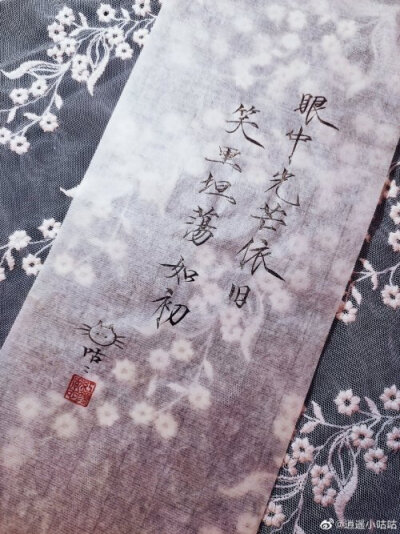 眼中光芒依旧
笑里坦荡如初
咕咕
@逍遥小咕咕